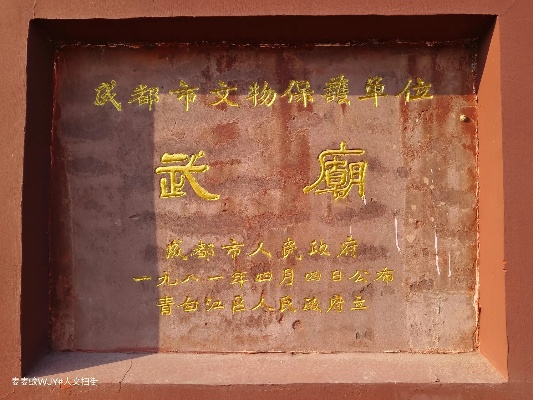 成都市文物保護單位
武廟
成都市人民政府
一九八一年四月四日公布
青白江区人民政府立